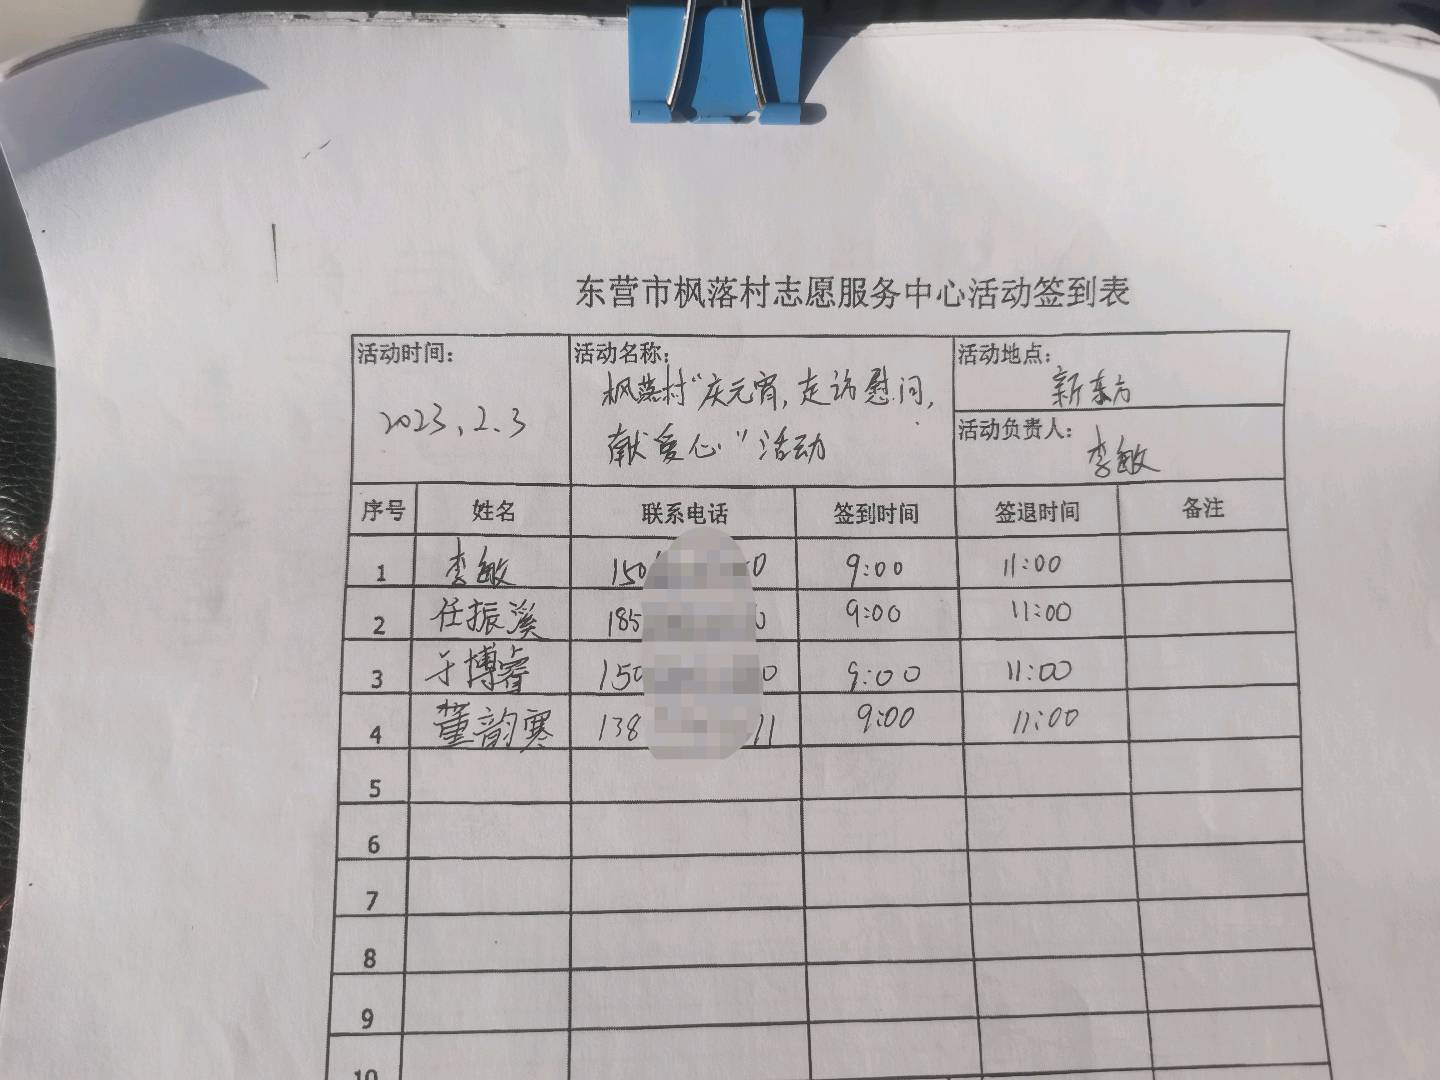 东营市枫落村志愿服务中心活动签到表
活动时间： 活动名称： 活动地点：
枫落村“庆元宵，走访慰问， 新东方
2023.2.3 献爱心”活动 活动负责人：
李敏
序号 姓名 联系电话 签到时间 签退时间 备注
1 李敏 150 0 9:00 11:00
2 任振溪 185 0 9:00 11:00
3 于博睿 150 0 9:00 11:00
4 董韵寒 138 11 9:00 11:00
5
6
7
8
9
10